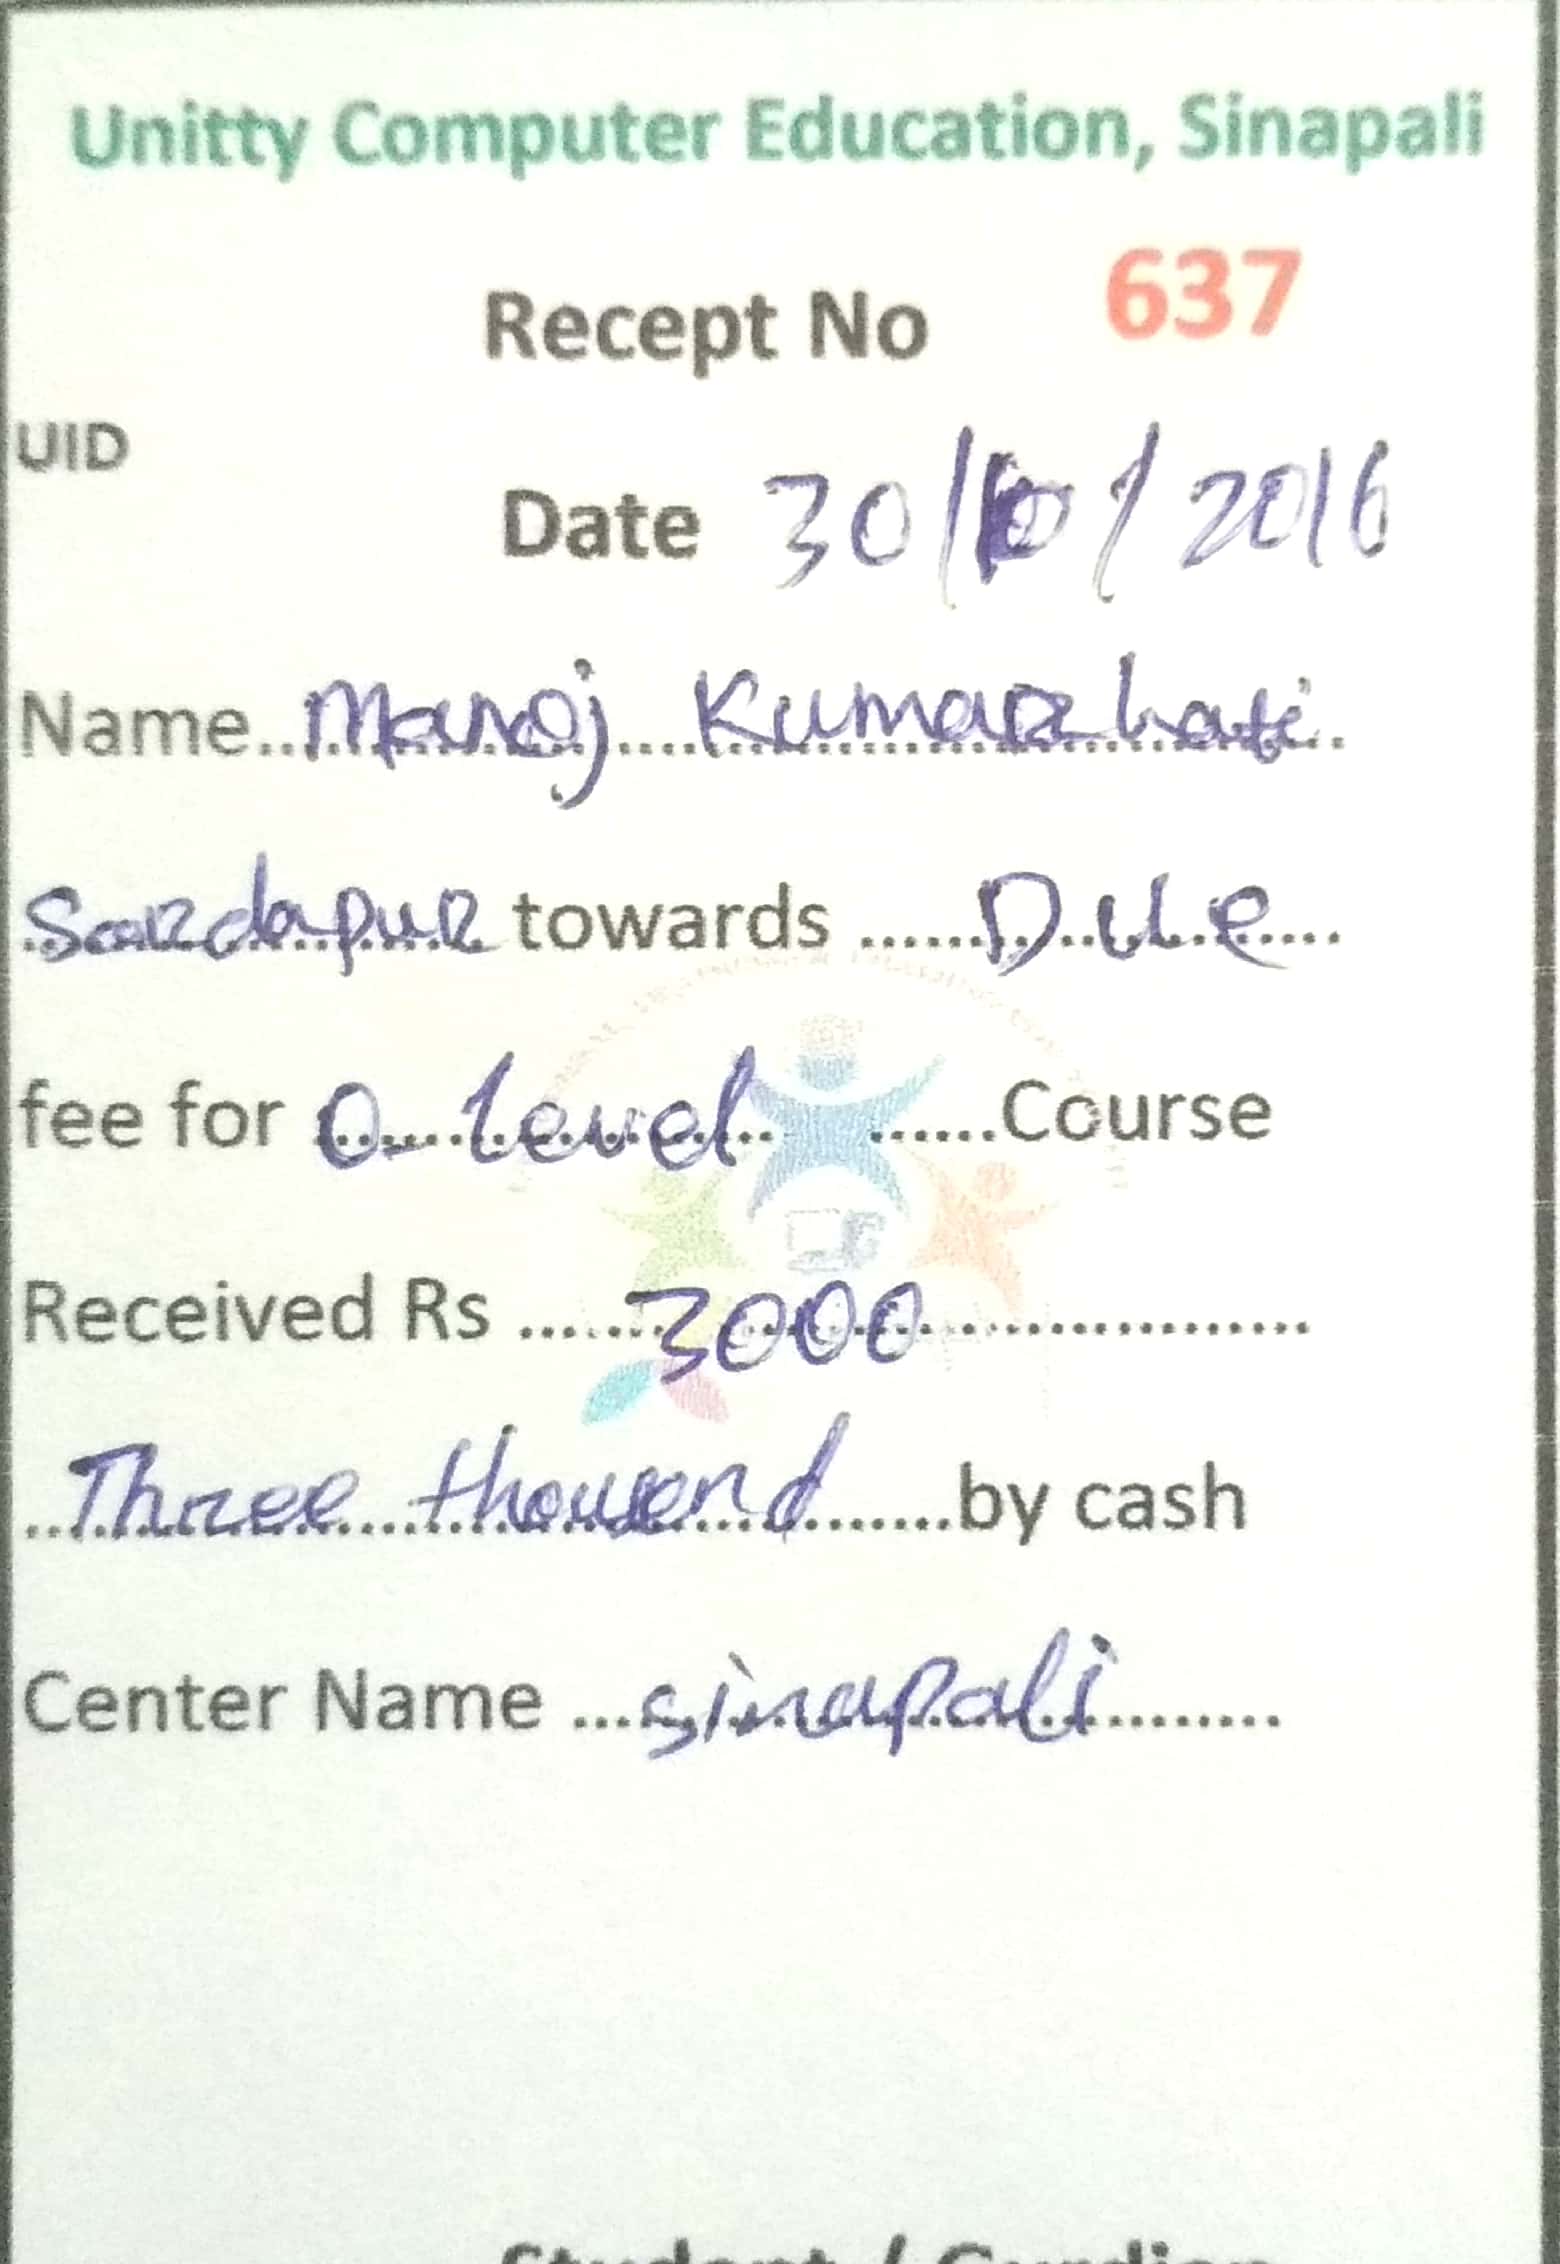 Unitty Computer Education, Sinapali
Recept No 637
UID
Date 30/10/2016
Name Manoj Kumar
Sardapur towards Due
fee for O-level Course
Received Rs 3000
Three thousand by cash
Center Name sinapali
Student / Gurdian